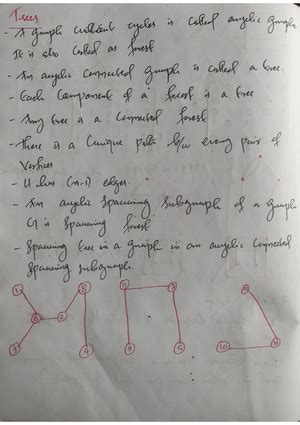 Trees
- A graph without cycles is called acyclic graph
It is also called as forest
- An acyclic connected graph is called a tree.
- Each component of a forest is a tree
- Any tree is a connected forest
- There is a unique path b/w every pair of
Vertices
- It has (n-1) edges.
- An acyclic spanning subgraph of a graph
G is spanning forest
- Spanning tree in a graph is an acyclic connected
Spanning subgraph.